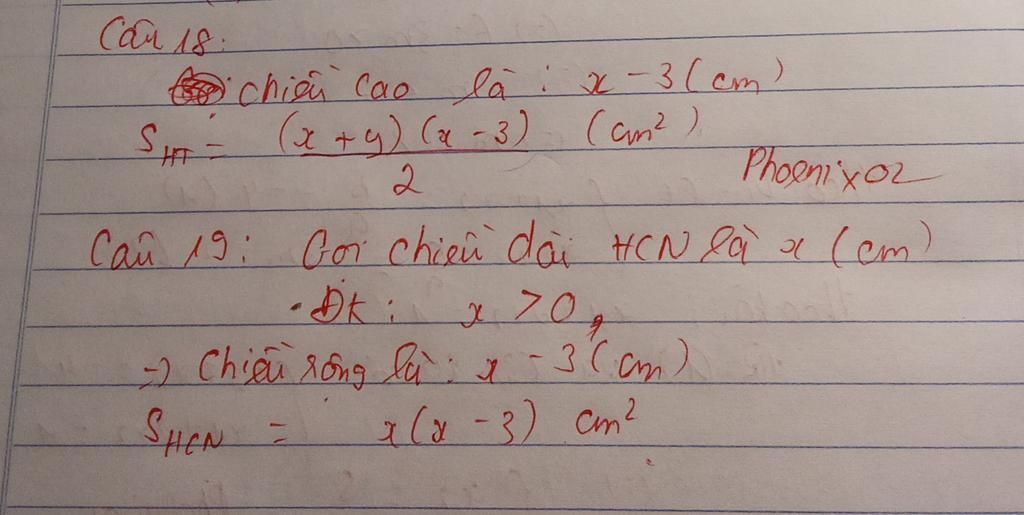 Câu 18:
chiều cao là : x - 3 (cm)
S HT = (x + y) (x - 3) / 2 (cm²)
Phoenix02
Câu 19: Gọi chiều dài HCN là x (cm)
ĐK: x > 0,
=> Chiều rộng là : x - 3 (cm)
S HCN = x(x - 3) cm²